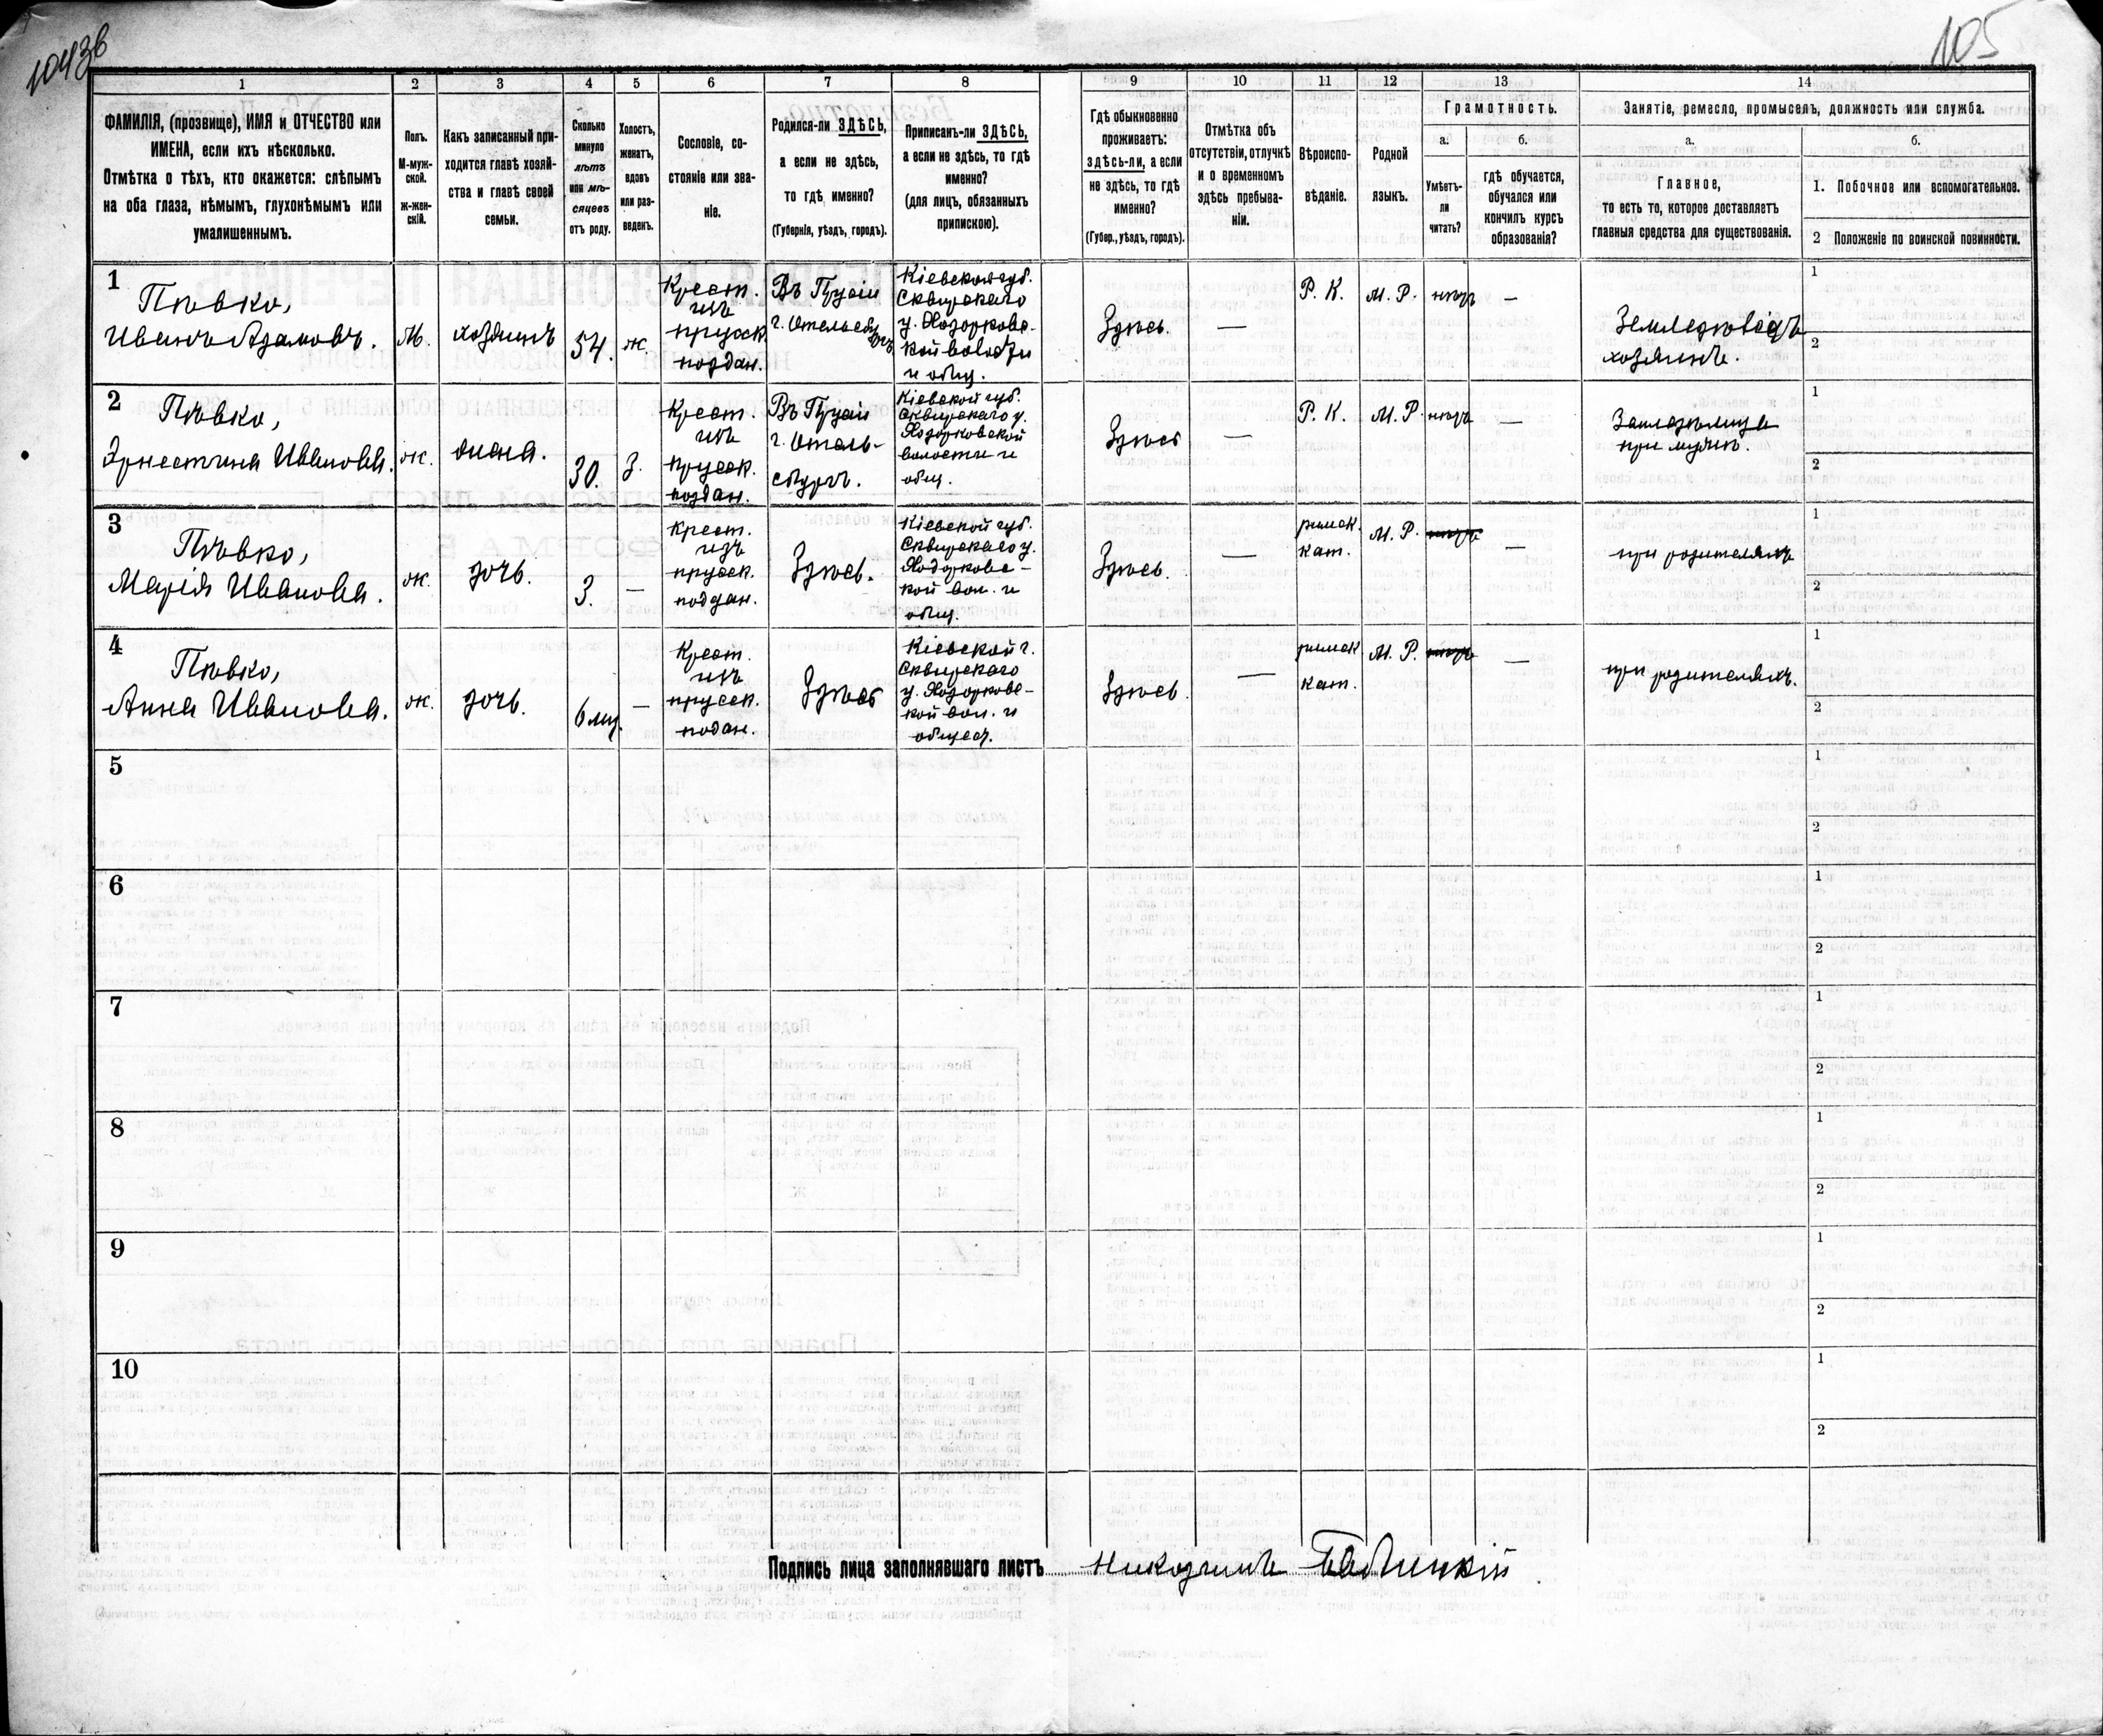 105
1 2 3 4 5 6 7 8 9 10 11 12 13 14
ФАМИЛІЯ, (прозвище), ИМЯ и ОТЧЕСТВО или
ИМЕНА, если ихъ нѣсколько.
Отмѣтка о тѣхъ, кто окажется: слѣпымъ
на оба глаза, нѣмымъ, глухонѣмымъ или
умалишеннымъ.
Полъ.
М-муж-
ской.
ж-жен-
скій.
Какъ записанный при-
ходится главѣ хозяй-
ства и главѣ своей
семьи.
Сколько
минуло
лѣтъ
или мѣ-
сяцевъ
отъ роду.
Холостъ,
женатъ,
вдовъ
или раз-
веденъ.
Сословіе, со-
стояніе или зва-
ніе.
Родился-ли ЗДѢСЬ,
а если не здѣсь,
то гдѣ именно?
(Губернія, уѣздъ, городъ).
Приписанъ-ли ЗДѢСЬ,
а если не здѣсь, то гдѣ
именно?
(для лицъ, обязанныхъ
припискою).
Гдѣ обыкновенно
проживаетъ:
здѣсь-ли, а если
не здѣсь, то гдѣ
именно?
(Губер., уѣздъ, городъ).
Отмѣтка объ
отсутствіи, отлучкѣ
и о временномъ
здѣсь пребыва-
ніи.
Вѣроиспо-
вѣданіе.
Родной
языкъ.
Грамотность.
а.
Умѣетъ-
ли
читать?
б.
гдѣ обучается,
обучался или
кончилъ курсъ
образованія?
Занятіе, ремесло, промыселъ, должность или служба.
а.
Главное,
то есть то, которое доставляетъ
главныя средства для существованія.
б.
1. Побочное или вспомогательное.
2 Положеніе по воинской повинности.
1
Пѣвко,
Иванъ Адамовъ.
М.
хозяинъ
54.
ж.
Крест.
изъ
прусск.
поддан.
Въ Прусіи
Кіевской губ.
Сквирскаго
у. Ходорковс-
кой волости
и общ.
Здѣсь.
—
Р. К.
М. Р.
нѣтъ
—
хозяинъ.
1
2
2
Пѣвко,
Эрнестина Иванова.
ж.
жена.
30.
З.
Крест.
изъ
прусск.
поддан.
Въ Прусіи
Кіевской губ.
Сквирскаго у.
Ходорковской
волости и
общ.
Здѣсь
—
Р. К.
М. Р.
нѣтъ
—
при мужѣ.
1
2
3
Пѣвко,
Марія Иванова.
ж.
дочь.
3.
—
крест.
изъ
прусск.
поддан.
Здѣсь.
Кіевской губ.
Сквирскаго у.
Ходорковс-
кой вол. и
общ.
Здѣсь.
—
римск.
кат.
М. Р.
нѣтъ
—
при родителяхъ
1
2
4
Пѣвко,
Анна Иванова.
ж.
дочь.
6 мц.
—
Крест.
изъ
прусск.
подан.
Здѣсь
Кіевской г.
Сквирскаго
у. Ходорковс-
кой вол. и
общест.
Здѣсь.
—
римск
кат.
М. Р.
нѣтъ
—
при родителяхъ.
1
2
5
1
2
6
1
2
7
1
2
8
1
2
9
1
2
10
1
2
Подпись лица заполнявшаго листъ Никодимъ